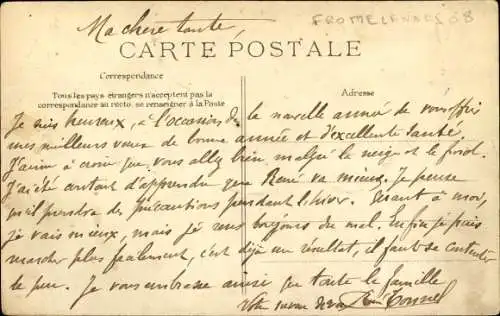 Ma chère tante,
FROMELENNES 08
CARTE POSTALE
Correspondance
Tous les pays étrangers n'acceptent pas la
correspondance au recto, se renseigner à la Poste
Adresse
Je suis heureux, à l'occasion de la nouvelle année de vous offrir
mes meilleurs vœux de bonne année et d'excellente santé.
J'aime à croire que vous allez bien, malgré la neige et le froid.
J'ai été content d'apprendre que René va mieux. Je pense
qu'il prendra des précautions pendant l'hiver. Quant à moi,
je vais mieux, mais je sens toujours du mal. Enfin je puis
marcher plus facilement, c'est déjà un résultat, il faut se contenter
de peu. Je vous embrasse ainsi que toute la famille
Votre neveu